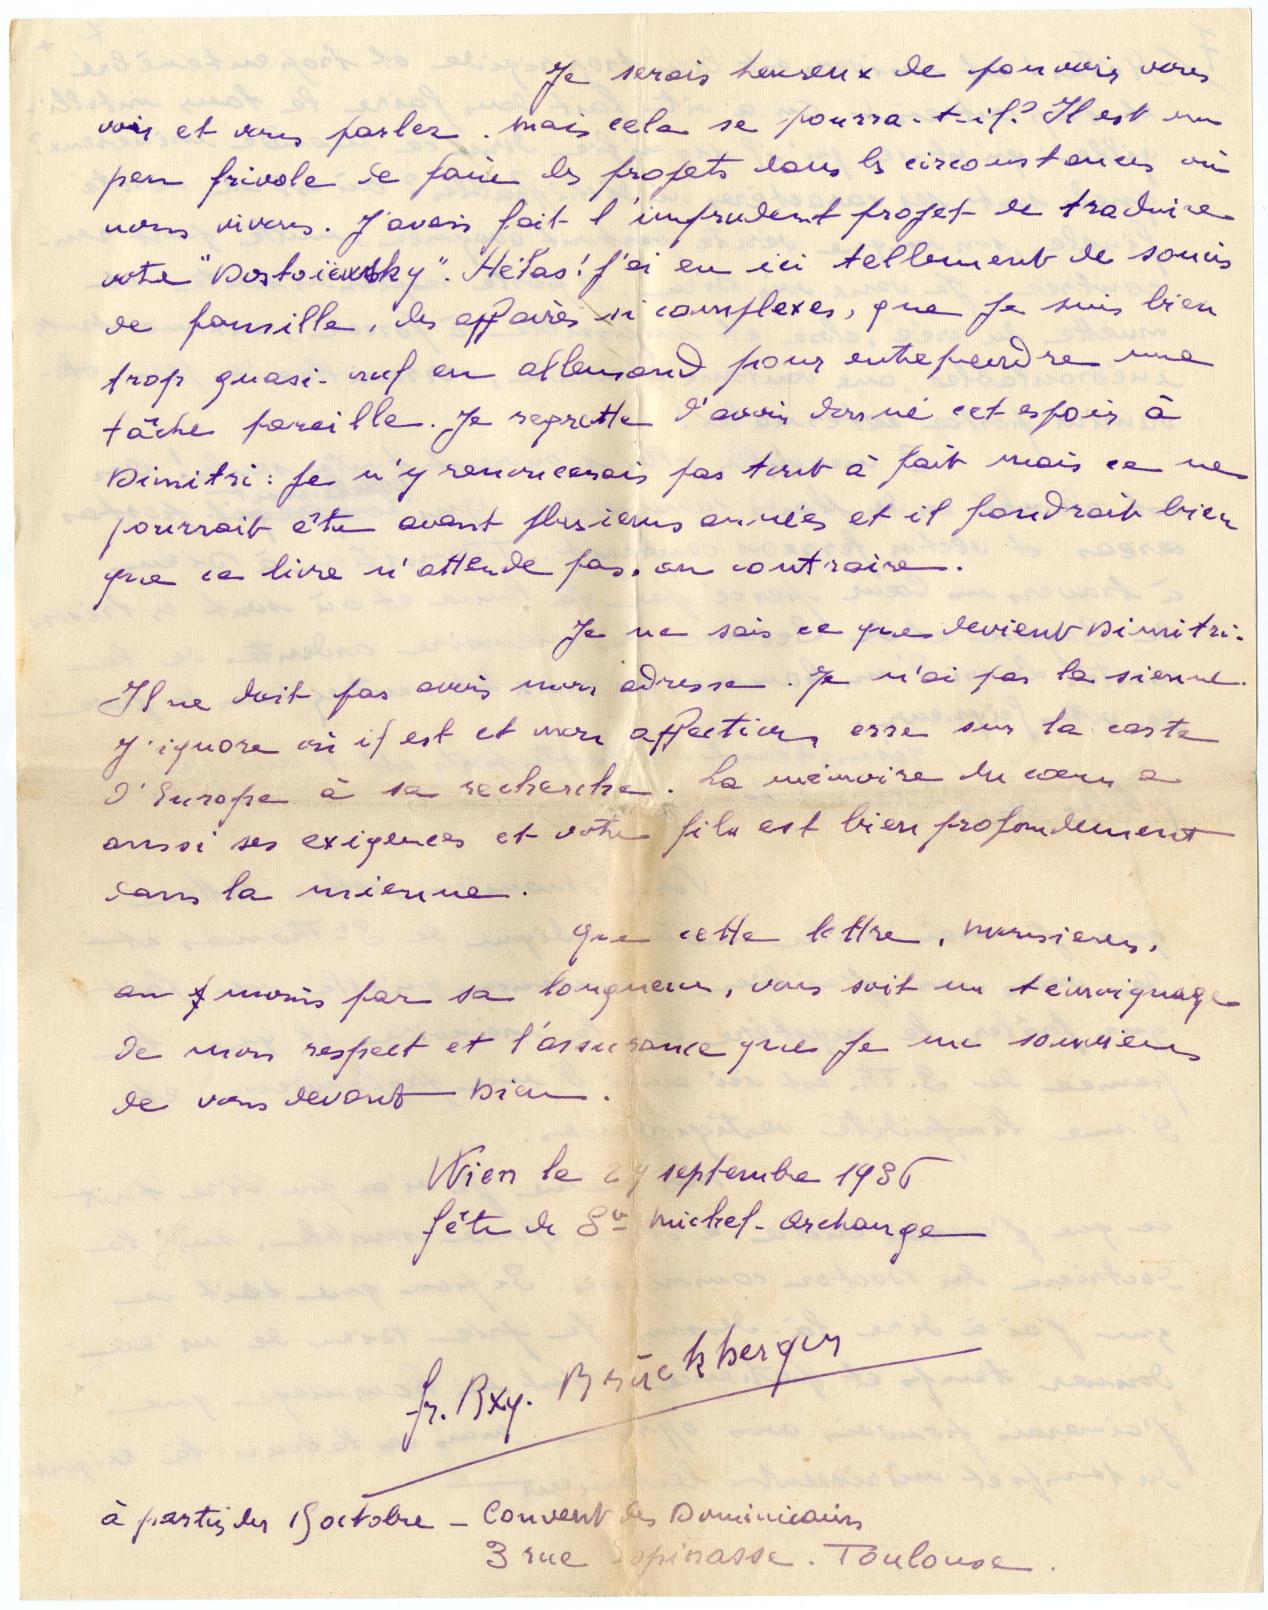 Je serais heureux de pouvoir vous
voir et vous parler. mais cela se pourra-t-il? Il est un
peu frivole de faire des projets dans les circonstances où
nous vivons. J'avais fait l'imprudent projet de traduire
votre "Dostoïewsky". Hélas! j'ai eu ici tellement de soucis
de famille, des affaires si complexes, que je suis bien
trop quasi-nul en allemand pour entreprendre une
tâche pareille. Je regrette d'avoir donné cet espoir à
Dimitri: je n'y renoncerais pas tout à fait mais ce ne
pourrait être avant plusieurs années et il faudrait bien
que ce livre n'attende pas, au contraire.
Je ne sais ce que devient Dimitri.
Il ne doit pas avoir mon adresse. Je n'ai pas la sienne.
J'ignore où il est et mon affection erre sur la carte
d'Europe à sa recherche. La mémoire du cœur a
aussi ses exigences et votre fils est bien profondément
dans la mienne.
Que cette lettre, monsieur,
au moins par sa longueur, vous soit un témoignage
de mon respect et l'assurance que je me souviens
de vous devant Dieu.
Wien le 29 septembre 1936
fête de St Michel-Archange
fr. Rxy. Brückberger
à partir du 15 octobre – Couvent des Dominicains
3 rue Espinasse. Toulouse.